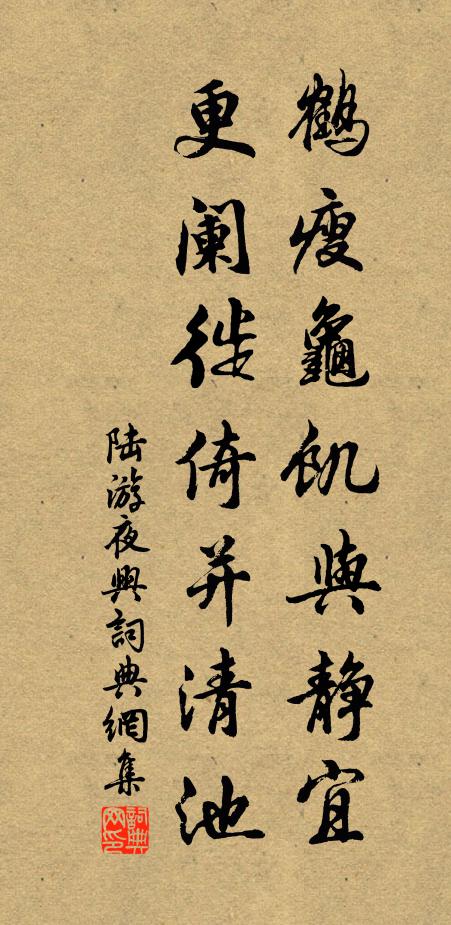 鶴瘦龜飢與静宜
更阑徙倚并清池
陆游夜興詞典網集
詞典網印